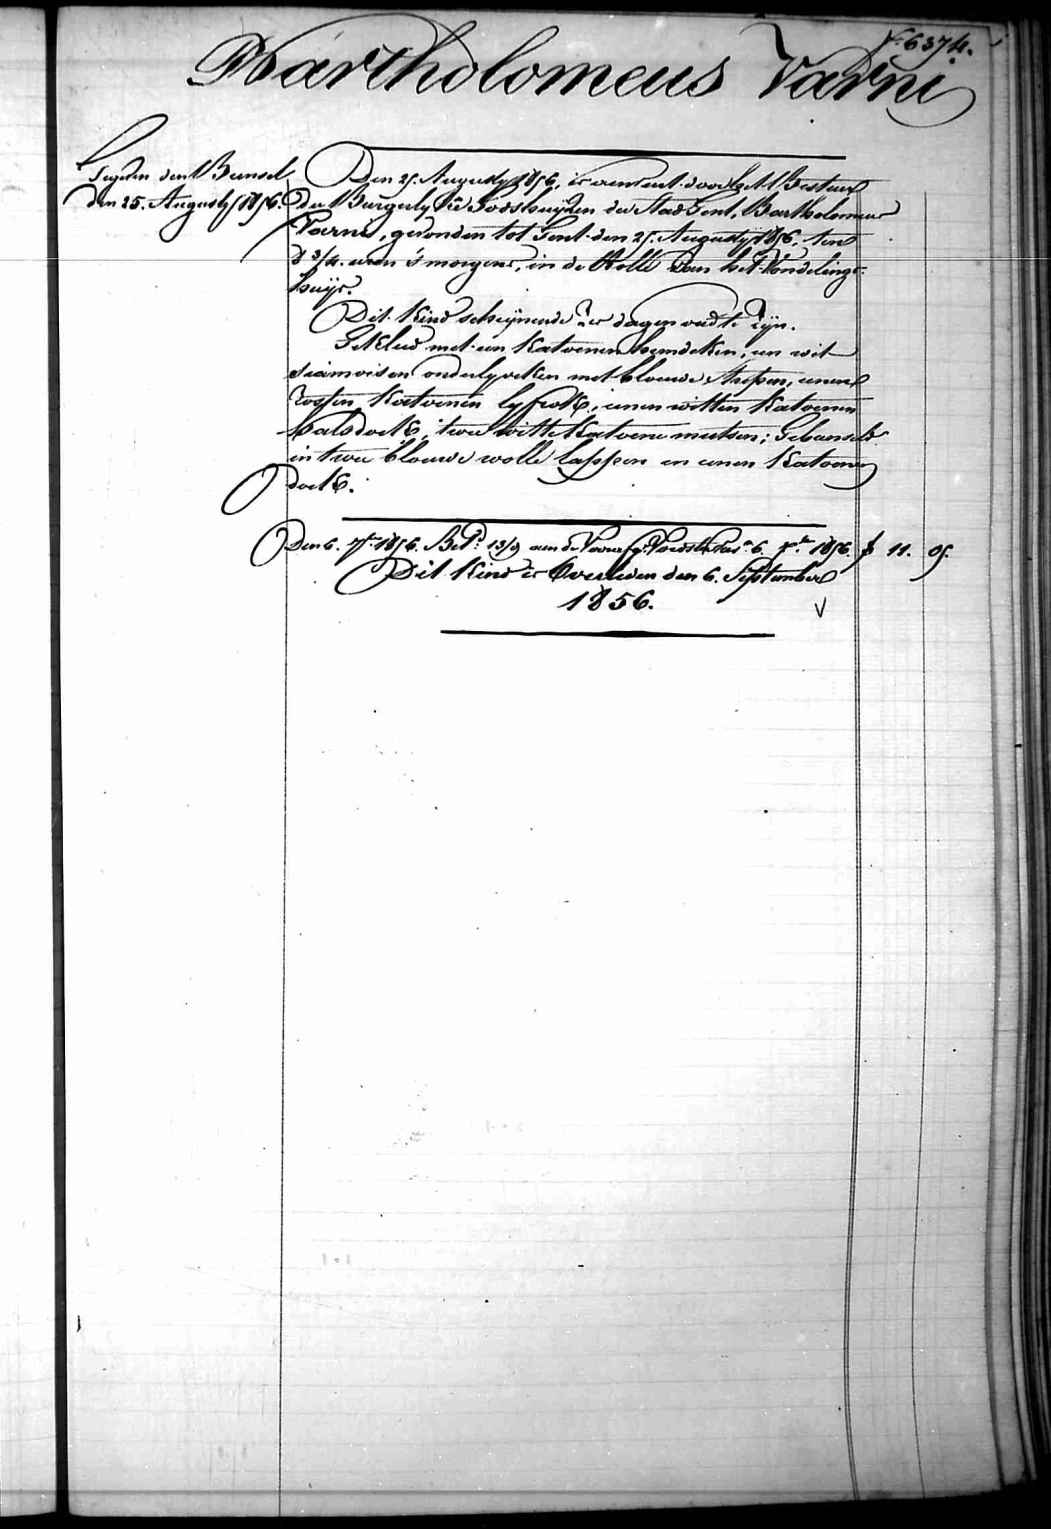 N° 6374.
Bartholomeus Varni
Den 25. Augusty 1856, is aenveert door het Bestuur
den 25. Augusty 1856.
Der Burgerlyke Godshuijzen der Stad Gent, Bartholomeus
Varni, gevonden tot Gent den 25. Augusty 1856. ten
8 3/4. uren s'morgens, in de Rolle van het Vondelings-
huijs.
Dit Kind schijnende dagen oud te zijn.
Gekleed met een Katoenen hemdeken, een wit
siamoisen onderlyveken met blauwe strepen, eenen
Katoenen lyfrok, eenen witten Katoenen
halsdoek, twee witte Katoene mutsen; Gebunseld
in twee blauwe wolle lappen en eenen Katoenen
doek.
Den 6. 7br 1856. Bet.d 13/9 aen de 6. 7br 1856. f 11. 05.
Dit Kind is Overleden den 6. September
1856.